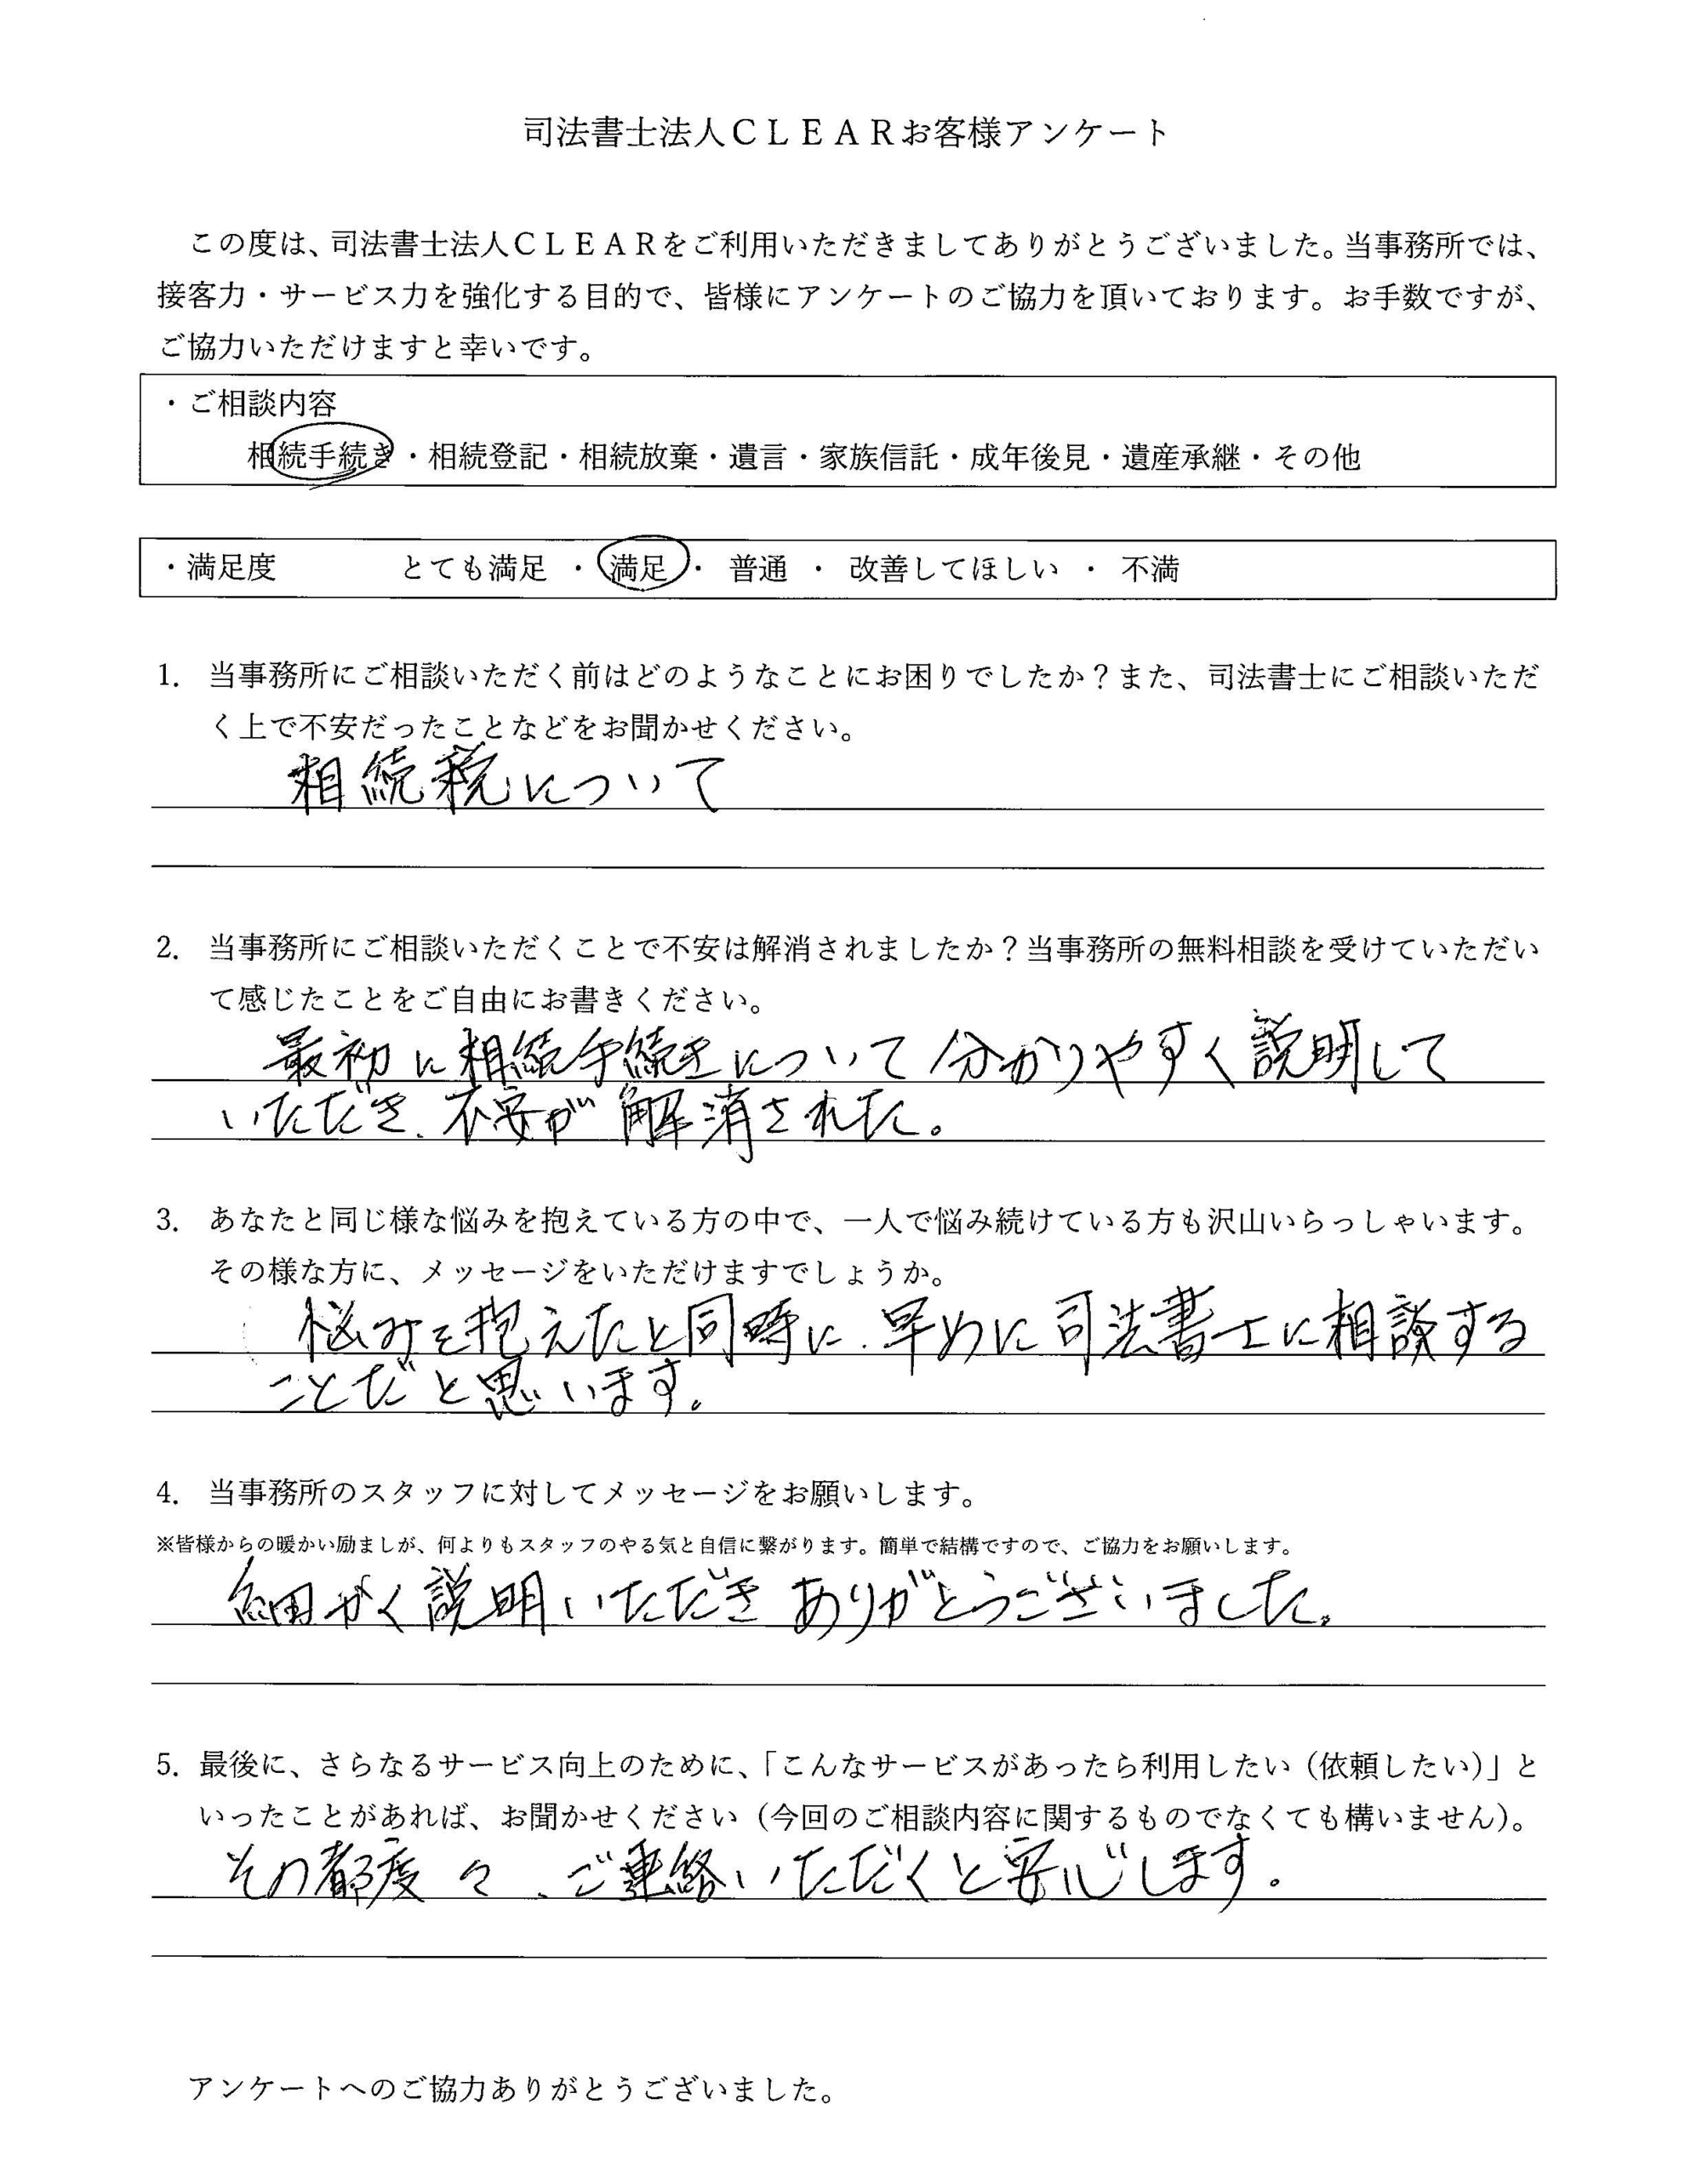 司法書士法人ＣＬＥＡＲお客様アンケート
この度は、司法書士法人ＣＬＥＡＲをご利用いただきましてありがとうございました。当事務所では、
接客力・サービス力を強化する目的で、皆様にアンケートのご協力を頂いております。お手数ですが、
ご協力いただけますと幸いです。
・ご相談内容
相続手続き・相続登記・相続放棄・遺言・家族信託・成年後見・遺産承継・その他
・満足度　とても満足 ・ 満足 ・ 普通 ・ 改善してほしい ・ 不満
1. 当事務所にご相談いただく前はどのようなことにお困りでしたか？また、司法書士にご相談いただ
く上で不安だったことなどをお聞かせください。
相続税について
2. 当事務所にご相談いただくことで不安は解消されましたか？当事務所の無料相談を受けていただい
て感じたことをご自由にお書きください。
最初に相続手続きについて分かりやすく説明して
いただき、不安が解消された。
3. あなたと同じ様な悩みを抱えている方の中で、一人で悩み続けている方も沢山いらっしゃいます。
その様な方に、メッセージをいただけますでしょうか。
悩みを抱えたと同時に、早めに司法書士に相談する
ことだと思います。
4. 当事務所のスタッフに対してメッセージをお願いします。
※皆様からの暖かい励ましが、何よりもスタッフのやる気と自信に繋がります。簡単で結構ですので、ご協力をお願いします。
細かく説明いただきありがとうございました。
5. 最後に、さらなるサービス向上のために、「こんなサービスがあったら利用したい（依頼したい）」と
いったことがあれば、お聞かせください（今回のご相談内容に関するものでなくても構いません）。
その都度々、ご連絡いただくと安心します。
アンケートへのご協力ありがとうございました。